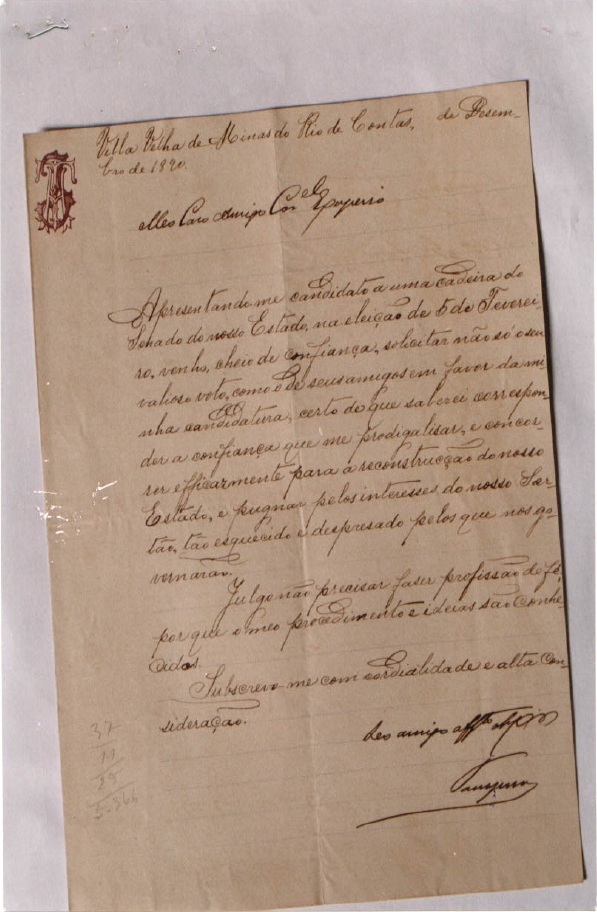 Villa Velha de Minas do Rio de Contas, de Desem-
bro de 1890.
Meo Caro Amigo Cor.el Exuperio
Apresentando-me candidato a uma cadeira do
Senado do nosso Estado, na eleição de 5 de Feverei-
ro, venho, cheio de confiança, solicitar não só o seu
valioso voto, como o de seus amigos em favor da mi-
nha candidatura, certo de que saberei correspon-
der a confiança que me prodigalisar, e concor-
rer efficazmente para a reconstrucção do nosso
Estado, e pugnar pelos interesses do nosso Ser-
tão, tão esquecido e despresado pelos que nos go-
vernarão.
Julgo não precisar faser profissão de fé,
por que o meo procedimento e ideias são conhe-
cidos.
Subscrevo-me com cordialidade e alta con-
sideração.
Seo amigo
37
11